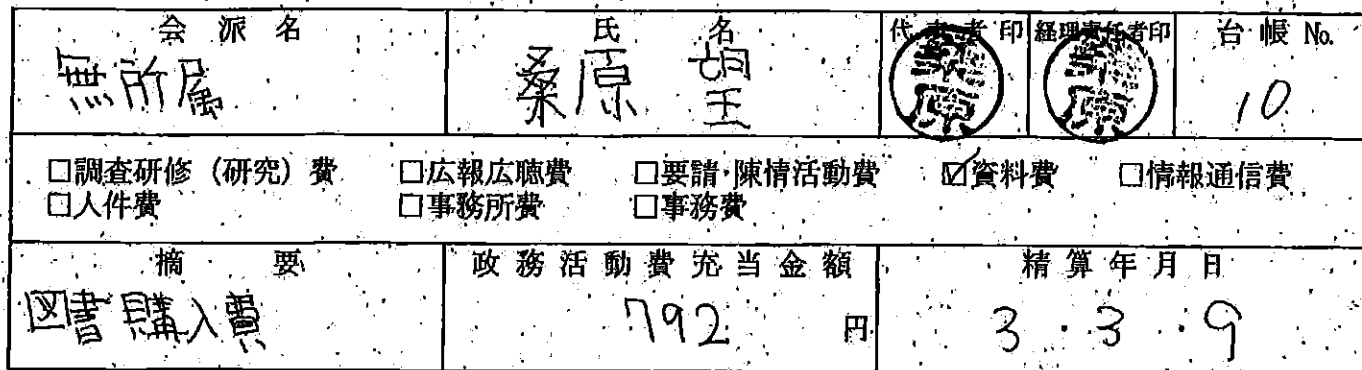 会派名 氏名 代表者印 経理責任者印 台帳 No.
無所属 桑原 望 桑原 桑原 10
□調査研修(研究)費 □広報広聴費 □要請・陳情活動費 ☑資料費 □情報通信費
□人件費 □事務所費 □事務費
摘要 政務活動費充当金額 精算年月日
図書購入費 792 円 3・3・9